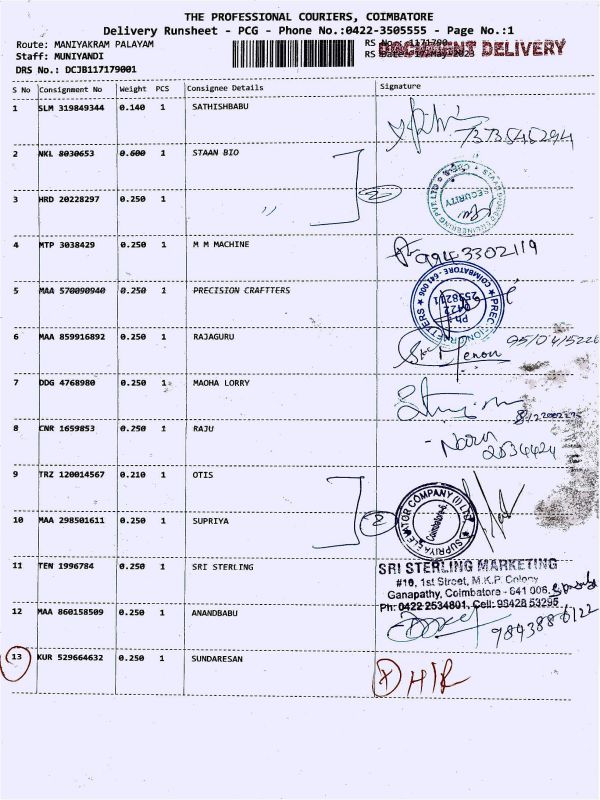 THE PROFESSIONAL COURIERS, COIMBATORE
Delivery Runsheet - PCG - Phone No.:0422-3505555 - Page No.:1
Route: MANIYAKRAM PALAYAM
RS No.: 1171790
DOCUMENT DELIVERY
Staff: MUNIYANDI
RS Date: 17-May-2023
DRS No.: DCJB117179001
S No Consignment No Weight PCS Consignee Details Signature
1 SLM 319849344 0.140 1 SATHISHBABU
7373545294
2 NKL 8030653 0.600 1 STAAN BIO
2
SECURITY
3 HRD 20228297 0.250 1 "
4 MTP 3038429 0.250 1 M M MACHINE
9943302119
5 MAA 570090940 0.250 1 PRECISION CRAFTTERS
COIMBATORE - 641 006
Ph : 0422
6 MAA 859916892 1 0.250 RAJAGURU
7 DDG 4768980 0.250 1 MAOHA LORRY
8 CNR 1659853 0.250 1 RAJU
2534424
9 TRZ 120014567 0.210 1 OTIS
2
SUPRIYA ELEVATOR COMPANY (I) LTD.
Coimbatore-6.
10 MAA 298501611 0.250 1 SUPRIYA
11 TEN 1996784 0.250 1 SRI STERLING
SRI STERLING MARKETING
#10, 1st Street, M.K.P. Colony
Ganapathy, Coimbatore - 641 006.
Ph: 0422 2534801, Cell: 98428 53295
12 MAA 860158509 0.250 1 ANANDBABU
13 KUR 529664632 0.250 1 SUNDARESAN